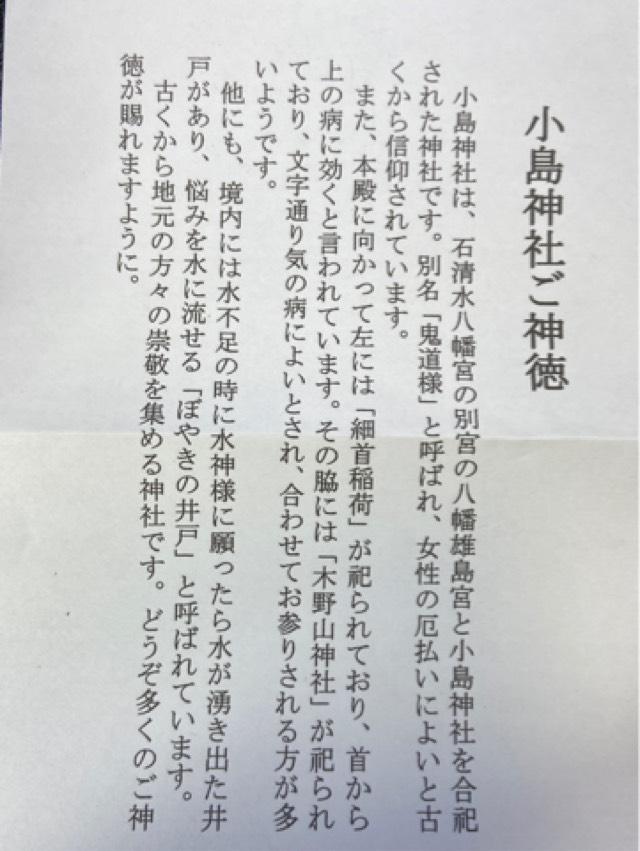 小島神社ご神徳
小島神社は、石清水八幡宮の別宮の八幡雄島宮と小島神社を合祀
された神社です。別名「鬼道様」と呼ばれ、女性の厄払いによいと古
くから信仰されています。
また、本殿に向かって左には「細首稲荷」が祀られており、首から
上の病に効くと言われています。その脇には「木野山神社」が祀られ
ており、文字通り気の病によいとされ、合わせてお参りされる方が多
いようです。
他にも、境内には水不足の時に水神様に願ったら水が湧き出た井
戸があり、悩みを水に流せる「ぼやきの井戸」と呼ばれています。
古くから地元の方々の崇敬を集める神社です。どうぞ多くのご神
徳が賜れますように。